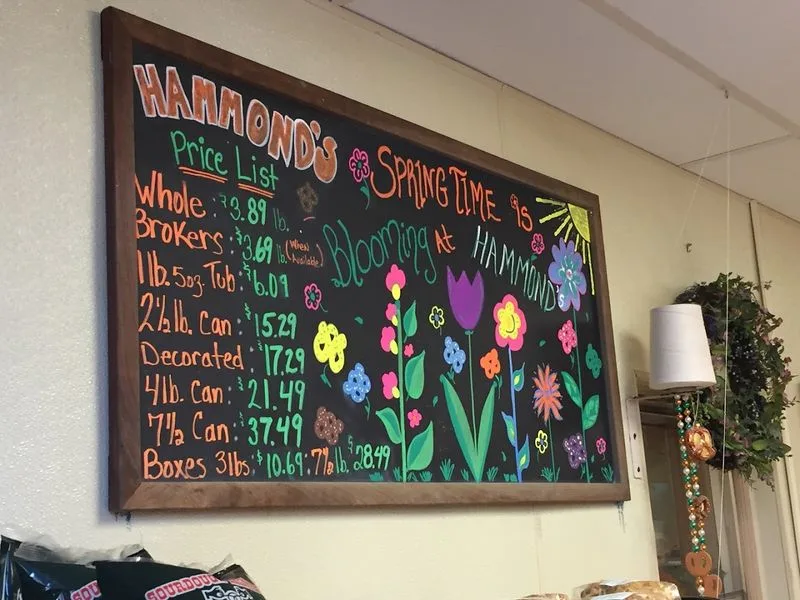 HAMMOND'S
Price List
Whole: $3.89 lb.
Brokers: $3.69 lb. (When Available)
1 lb. 5oz. Tub: $6.09
2½ lb. Can: $15.29
Decorated: $17.29
4 lb. Can: $21.49
7½ Can: $37.49
Boxes 3lbs: $10.69: 7½ lb. $28.49
SPRINGTIME IS
Blooming At HAMMONDS
SOURDOUGH